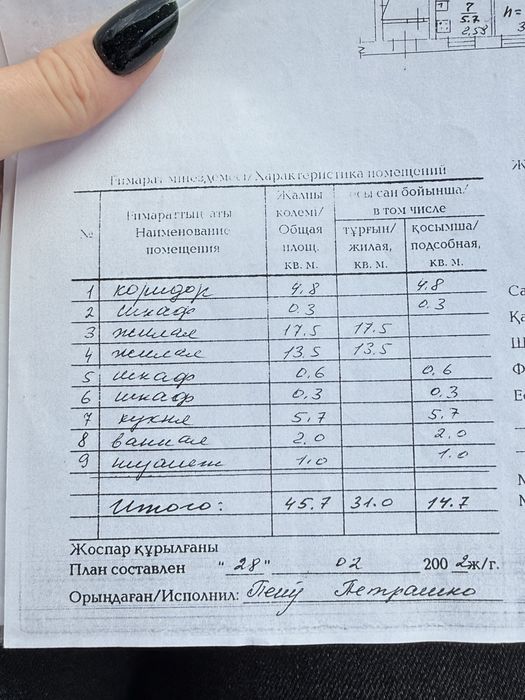 7
5.7
2,53
h=
Ғимарат мінездемесі/Характеристика помещений
№ | Ғимараттың аты Наименование помещения | Жалпы көлемі/ Общая площ. кв. м. | осы сан бойынша/ в том числе
тұрғын/ жилая, кв. м. | қосымша/ подсобная, кв. м.
1 коридор 4.8 4.8
2 шкаф 0.3 0.3
3 жилая 17.5 17.5
4 жилая 13.5 13.5
5 шкаф 0.6 0.6
6 шкаф 0.3 0.3
7 кухня 5.7 5.7
8 ванная 2.0 2.0
9 туалет 1.0 1.0
Итого: 45.7 31.0 14.7
Жоспар құрылғаны
План составлен "28" 02 200 2ж/г.
Орындаған/Исполнил: Петрашко